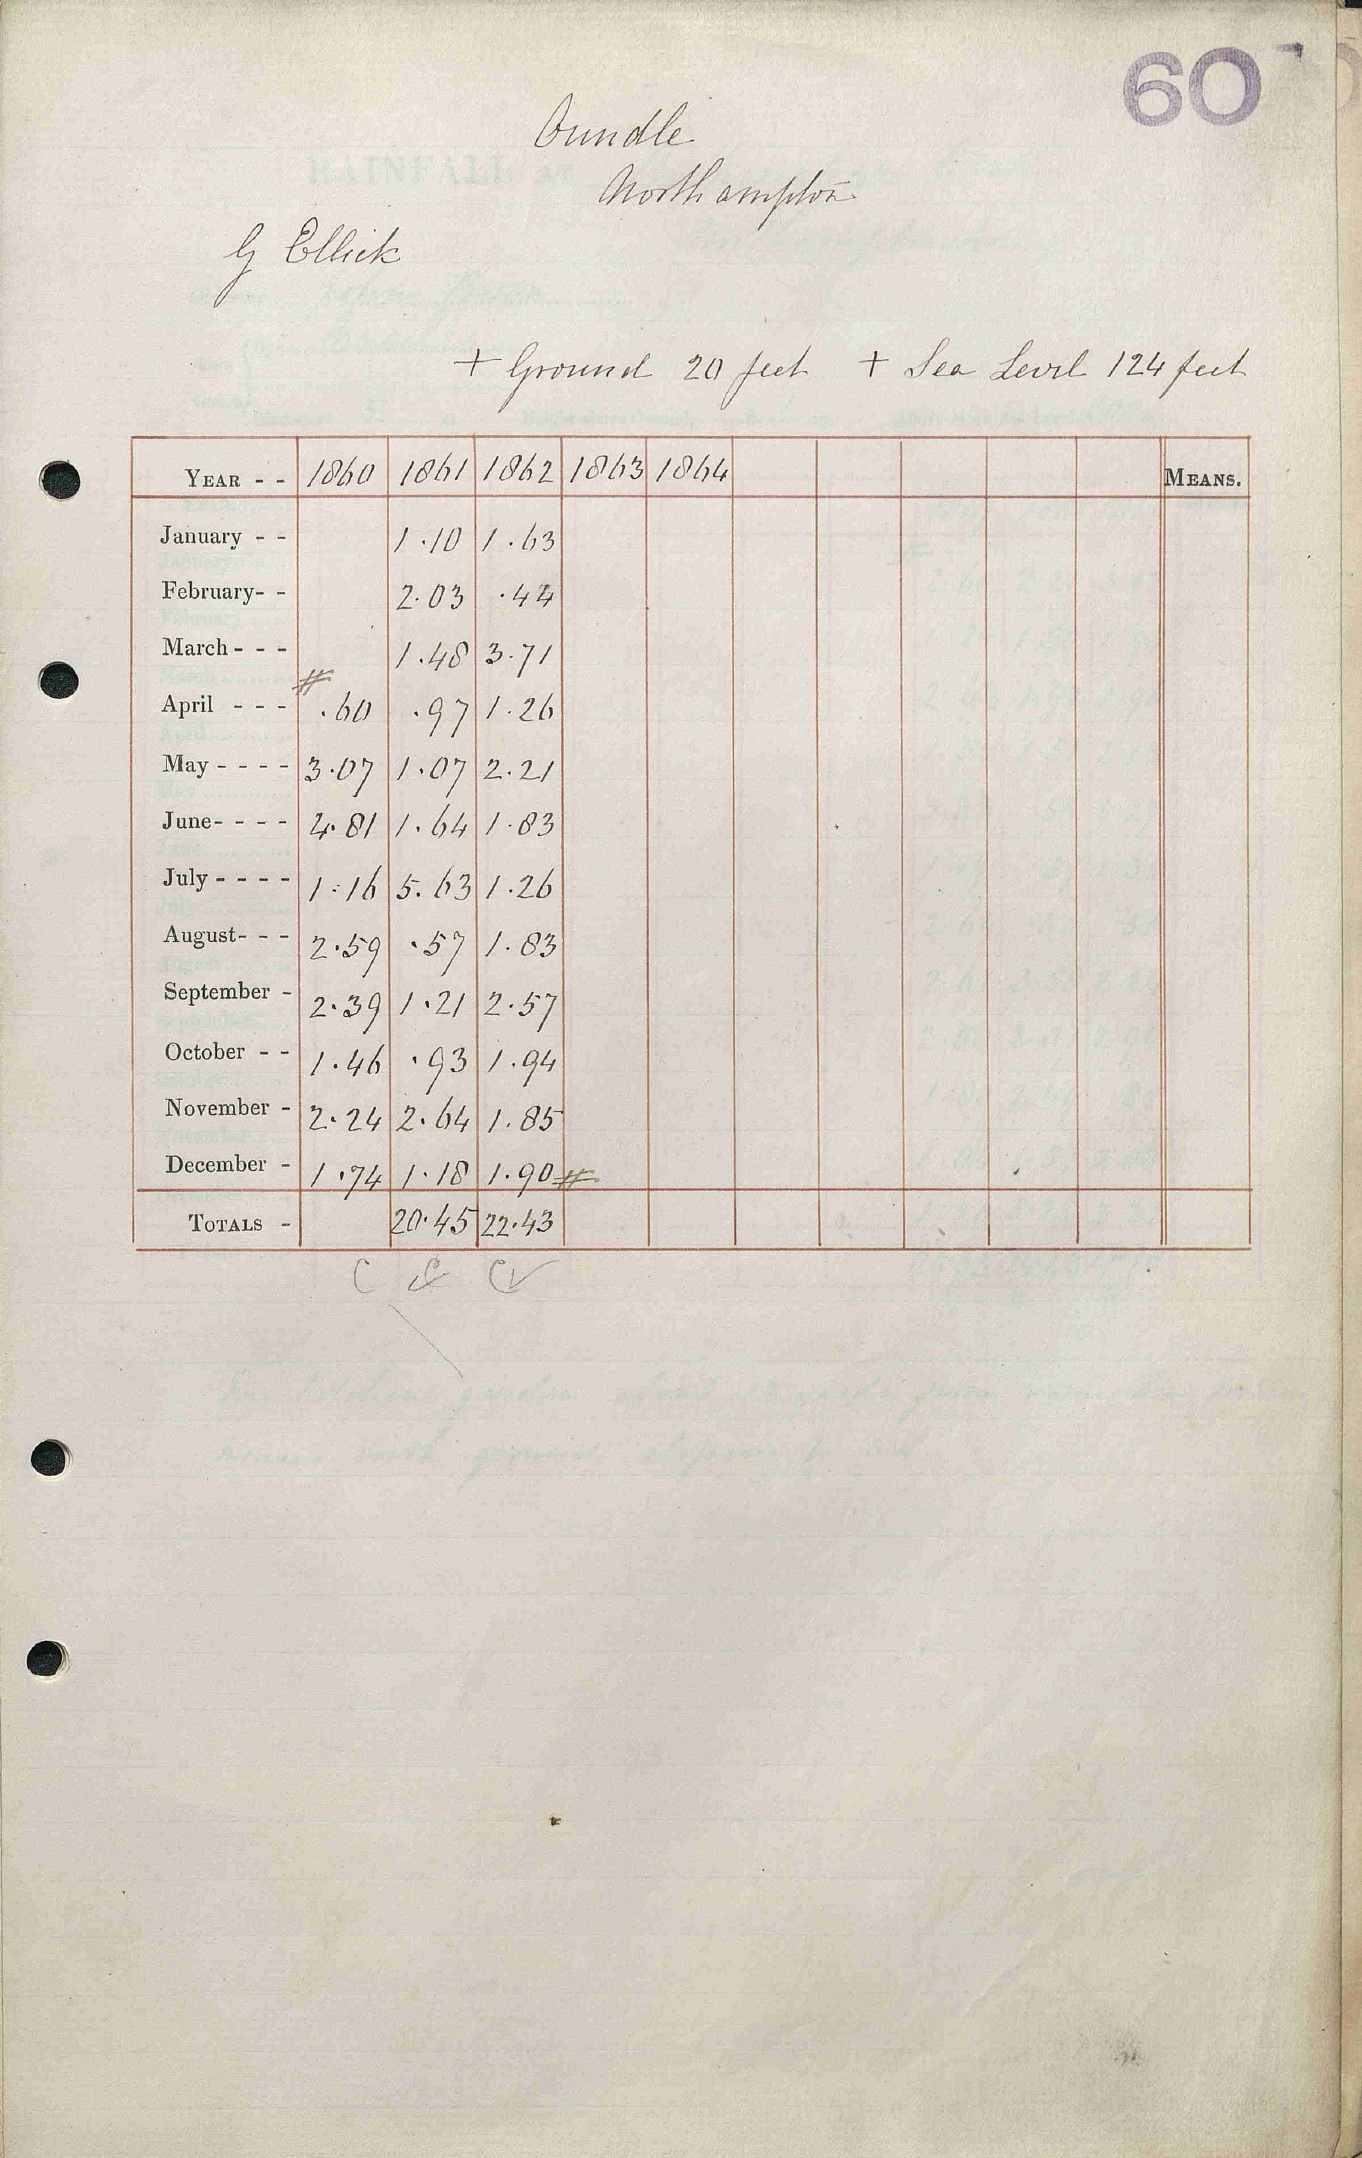 60
Oundle
Northampton
G Ellick
+ Ground 20 feet + Sea Level 124 feet
YEAR - - 1860 1861 1862 1863 1864 MEANS.
January - - 1.10 1.63
February- - 2.03 .44
March - - - 1.48 3.71
#
April - - - .60 .97 1.26
May - - - - 3.07 1.07 2.21
June- - - - 4.81 1.64 1.83
July - - - - 1.16 5.63 1.26
August- - - 2.59 .57 1.83
September - 2.39 1.21 2.57
October - - 1.46 .93 1.94
November - 2.24 2.64 1.85
December - 1.74 1.18 1.90 #
TOTALS - 20.45 22.43
C C C